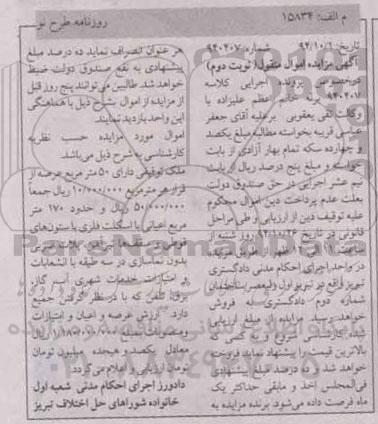 م الف: ۱۵۸۳۴
روزنامه طرح نو
تاریخ: ۹۴/۱۰/۱ شماره: ۹۴۰۴۰۷
آگهی مزایده اموال منقول (نوبت دوم)
درخصوص پرونده اجرایی کلاسه
۹۴۰۴۰۷ برله خانم اعظم علیزاده با
وکالت تقی یعقوبی برعلیه آقای جعفر
عباسی قریبه بخواسته مطالبه مبلغ یکصد
و چهارده سکه تمام بهار آزادی از بابت
خواسته و مبلغ پنج درصد ریال از بابت
نیم عشر اجرایی در حق صندوق دولت
بعلت عدم پرداخت دین اموال محکوم
علیه توقیف دین از ارزیابی و طی مراحل
قانونی در تاریخ ۹۴/۱۰/۲۶ روز شنبه از
ساعت
در واحد اجرای احکام مدنی دادگستری
تبریز واقع در تبریز اول ولیعصر ساختمان
شماره دوم دادگستری به فروش
خواهد رسید. مزایده از مبلغ ارزیابی
شده کارشناسی شروع و به کسی که
بالاترین قیمت را پیشنهاد نماید فروخته
خواهد شد و ده درصد مبلغ پیشنهادی
فی‌المجلس اخذ و مابقی حداکثر یک
ماه فرصت داده می‌شود. برنده مزایده به
هر عنوان انصراف نماید ده درصد مبلغ
پیشنهادی به نفع صندوق دولت ضبط
خواهد شد. طالبین می‌توانند پنج روز قبل
از مزایده از اموال بشرح ذیل با هماهنگی
این واحد بازدید نمایند.
اموال مورد مزایده حسب نظریه
کارشناسی به شرح ذیل می‌باشد.
ملک توقیفی دارای ۵۰ متر مربع عرصه از
قرار هر مترمربع ۱۰/۰۰۰/۰۰۰ ریال جمعاً
۵۰۰/۰۰۰/۰۰۰ ریال و حدود ۱۷۰ متر
مربع اعیانی با اسکلت فلزی با ستون‌های
قوطی و سقف‌ها تیرآهن
بدون نماسازی در سه طبقه با انشعابات
و امتیازات خدمات شهری آب، گاز،
برق، تلفن که با در نظر گرفتن جمیع
دارد. ارزش عرصه و اعیان و امتیازات
ومنصوبات مبلغ ریال
معادل یکصد و هیجده میلیون تومان
تومان ارزیابی و اعلام می‌گردد.
دادورز اجرای احکام مدنی شعبه اول
خانواده شوراهای حل اختلاف تبریز
ParsNamadData